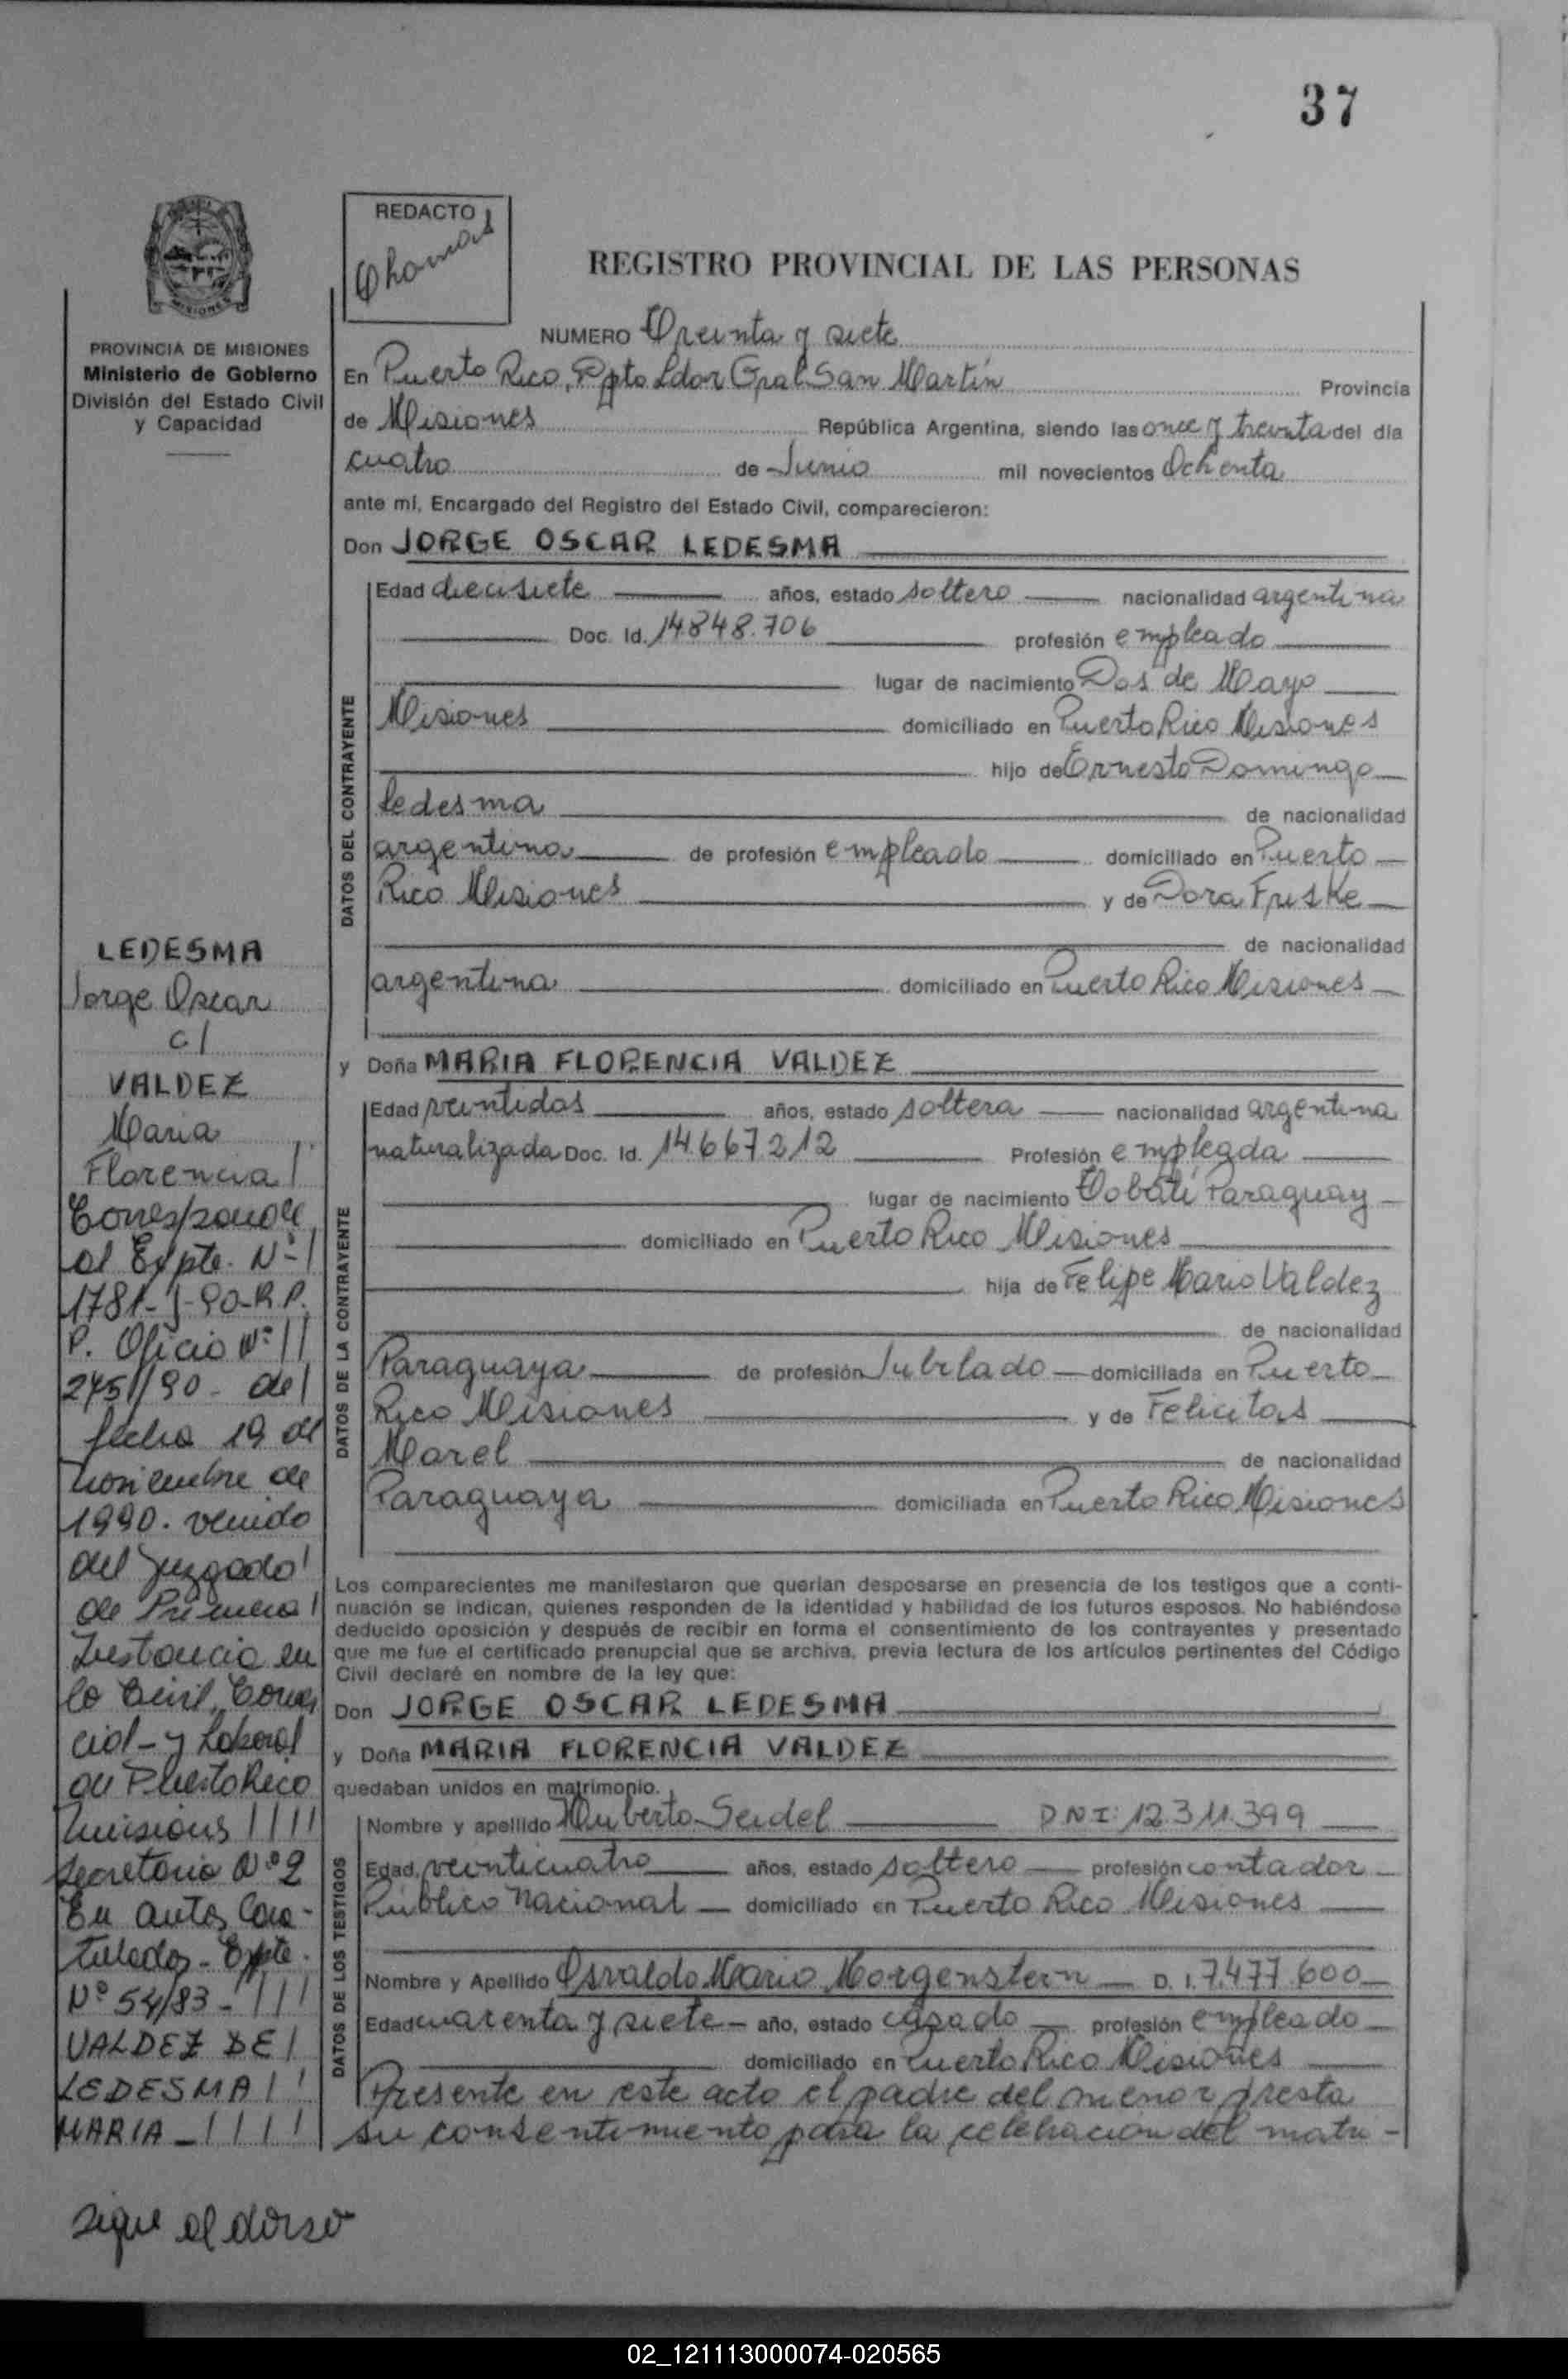 37
REDACTO
Thomas
REGISTRO PROVINCIAL DE LAS PERSONAS
MISIONES
PROVINCIA DE MISIONES
Ministerio de Gobierno
División del Estado Civil
y Capacidad
NUMERO Treinta y siete
En Puerto Rico, Dpto Ldor Gral San Martín Provincia
de Misiones República Argentina, siendo las once y treinta del día
cuatro de Junio mil novecientos Ochenta
ante mí, Encargado del Registro del Estado Civil, comparecieron:
Don JORGE OSCAR LEDESMA
DATOS DEL CONTRAYENTE
Edad diecisiete años, estado soltero nacionalidad argentina
Doc. Id. 14.848.706 profesión empleado
lugar de nacimiento Dos de Mayo
Misiones domiciliado en Puerto Rico Misiones
hijo de Ernesto Domingo
Ledesma de nacionalidad
argentina de profesión empleado domiciliado en Puerto
Rico Misiones y de Dora Friske
de nacionalidad
argentina domiciliado en Puerto Rico Misiones
y Doña MARIA FLORENCIA VALDEZ
DATOS DE LA CONTRAYENTE
Edad veintidos años, estado soltera nacionalidad argentina
naturalizada Doc. Id. 14.667.212 Profesión empleada
lugar de nacimiento Tobatí Paraguay
domiciliado en Puerto Rico Misiones
hija de Felipe Mario Valdez
de nacionalidad
Paraguaya de profesión Jubilado domiciliada en Puerto
Rico Misiones y de Felicitas
Marel de nacionalidad
Paraguaya domiciliada en Puerto Rico Misiones
Los comparecientes me manifestaron que querían desposarse en presencia de los testigos que a conti-
nuación se indican, quienes responden de la identidad y habilidad de los futuros esposos. No habiéndose
deducido oposición y después de recibir en forma el consentimiento de los contrayentes y presentado
que me fue el certificado prenupcial que se archiva, previa lectura de los artículos pertinentes del Código
Civil declaré en nombre de la ley que:
Don JORGE OSCAR LEDESMA
y Doña MARIA FLORENCIA VALDEZ
quedaban unidos en matrimonio.
DATOS DE LOS TESTIGOS
Nombre y apellido Huberto Seidel DNI: 12.311.399
Edad, veinticuatro años, estado soltero profesión contador
Público Nacional domiciliado en Puerto Rico Misiones
Nombre y Apellido Osvaldo Mario Morgenstern D. I. 7.477.600
Edad cuarenta y siete año, estado casado profesión empleado
domiciliado en Puerto Rico Misiones
Presente en este acto el padre del menor presta
su consentimiento para la celebración del matri-
LEDESMA
Jorge Oscar
c/
VALDEZ
Maria
Florencia
Corresponde
al Expte. Nº
1781-J-90-R.P.
P. Oficio Nº
2451/90- del
fecha 19 de
noviembre de
1990. venido
del Juzgado
de Primera
Instancia en
lo Civil, Comer
cial- y Laboral
de Puerto Rico
Misiones
Secretaria Nº 2
En autos Cara-
tulados- Expte.
Nº 54/83-
VALDEZ DE
LEDESMA
MARIA-
sigue al dorso
02_121113000074-020565